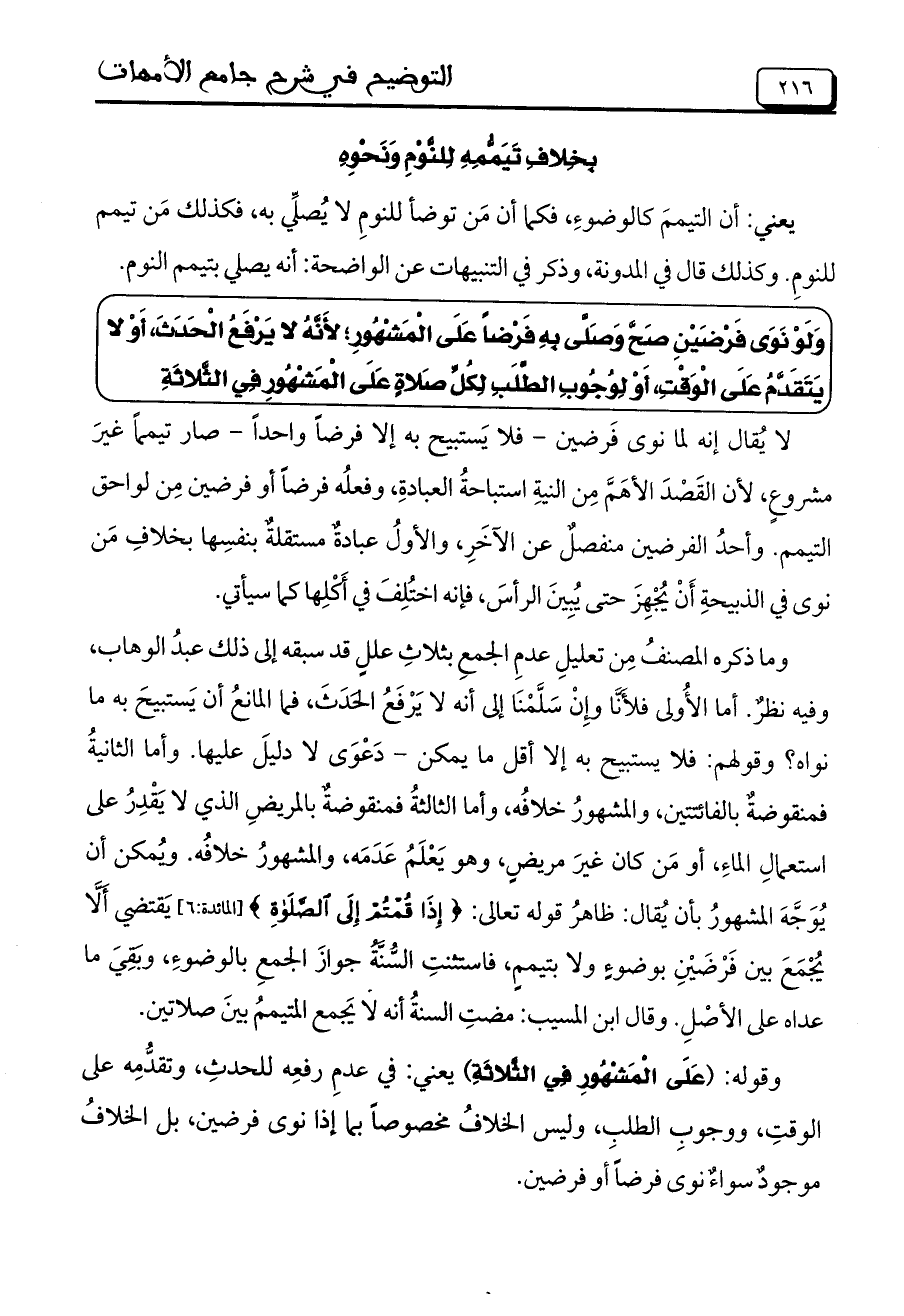 ٢١٦
التوضيح في شرح جامع الأمهات
بِخلافِ تَيَمُّمِهِ لِلنَّوْمِ وَنَحْوِهِ
يعني: أن التيممَ كالوضوءِ، فكما أن مَن توضأ للنومِ لا يُصلِّي به، فكذلك مَن تيمم
للنومِ. وكذلك قال في المدونة، وذكر في التنبيهات عن الواضحة: أنه يصلي بتيمم النوم.
وَلَوْ نَوَى فَرْضَيْنِ صَحَّ وَصَلَّى بِهِ فَرْضاً عَلَى الْمَشْهُورِ؛ لأَنَّهُ لا يَرْفَعُ الْحَدَثَ، أَوْ لا
يَتَقَدَّمُ عَلَى الْوَقْتِ، أَوْ لِوُجُوبِ الطَّلَبِ لِكُلِّ صَلاةٍ عَلَى الْمَشْهُورِ فِي الثَّلاثَةِ
لا يُقال إنه لما نوى فَرضين – فلا يَستبيح به إلا فرضاً واحداً – صار تيمماً غيرَ
مشروعٍ، لأن القَصْدَ الأهَمَّ مِن النية استباحةُ العبادةِ، وفعلُه فرضاً أو فرضين مِن لواحق
التيمم. وأحدُ الفرضين منفصلٌ عن الآخَرِ، والأولُ عبادةٌ مستقلةٌ بنفسِها بخلافِ مَن
نوى في الذبيحةِ أَنْ يُجْهِزَ حتى يُبِينَ الرأسَ، فإنه اختُلِفَ في أَكْلِها كما سيأتي.
وما ذكره المصنفُ مِن تعليلِ عدمِ الجمعِ بثلاثِ عللٍ قد سبقه إلى ذلك عبدُ الوهاب،
وفيه نظرٌ. أما الأُولى فلأَنَّا وإِنْ سَلَّمْنَا إلى أنه لا يَرْفَعُ الحَدَثَ، فما المانعُ أن يَستبيحَ به ما
نواه؟ وقولهم: فلا يستبيح به إلا أقل ما يمكن – دَعْوَى لا دليلَ عليها. وأما الثانيةُ
فمنقوضةٌ بالفائتتين، والمشهورُ خلافُه، وأما الثالثةُ فمنقوضةٌ بالمريضِ الذي لا يَقْدِرُ على
استعمالِ الماءِ، أو مَن كان غيرَ مريضٍ، وهو يَعْلَمُ عَدَمَه، والمشهورُ خلافُه. ويُمكن أن
يُوَجَّهَ المشهورُ بأن يُقال: ظاهرُ قوله تعالى: ﴿ إِذَا قُمْتُمْ إِلَى ٱلصَّلَوٰةِ ﴾ [المائدة:٦] يَقتضي أَلَّا
يُجْمَعَ بين فَرْضَيْنِ بوضوءٍ ولا بتيممٍ، فاستثنتِ السُّنَّةُ جوازَ الجمعِ بالوضوءِ، وبَقِيَ ما
عداه على الأصْلِ. وقال ابن المسيب: مضتِ السنةُ أنه لا يَجمع المتيممُ بينَ صلاتين.
وقوله: (عَلَى الْمَشْهُورِ فِي الثَّلاثَةِ) يعني: في عدمِ رفعِه للحدثِ، وتقدُّمِه على
الوقتِ، ووجوبِ الطلبِ، وليس الخلافُ مخصوصاً بما إذا نوى فرضين، بل الخلافُ
موجودٌ سواءٌ نوى فرضاً أو فرضين.